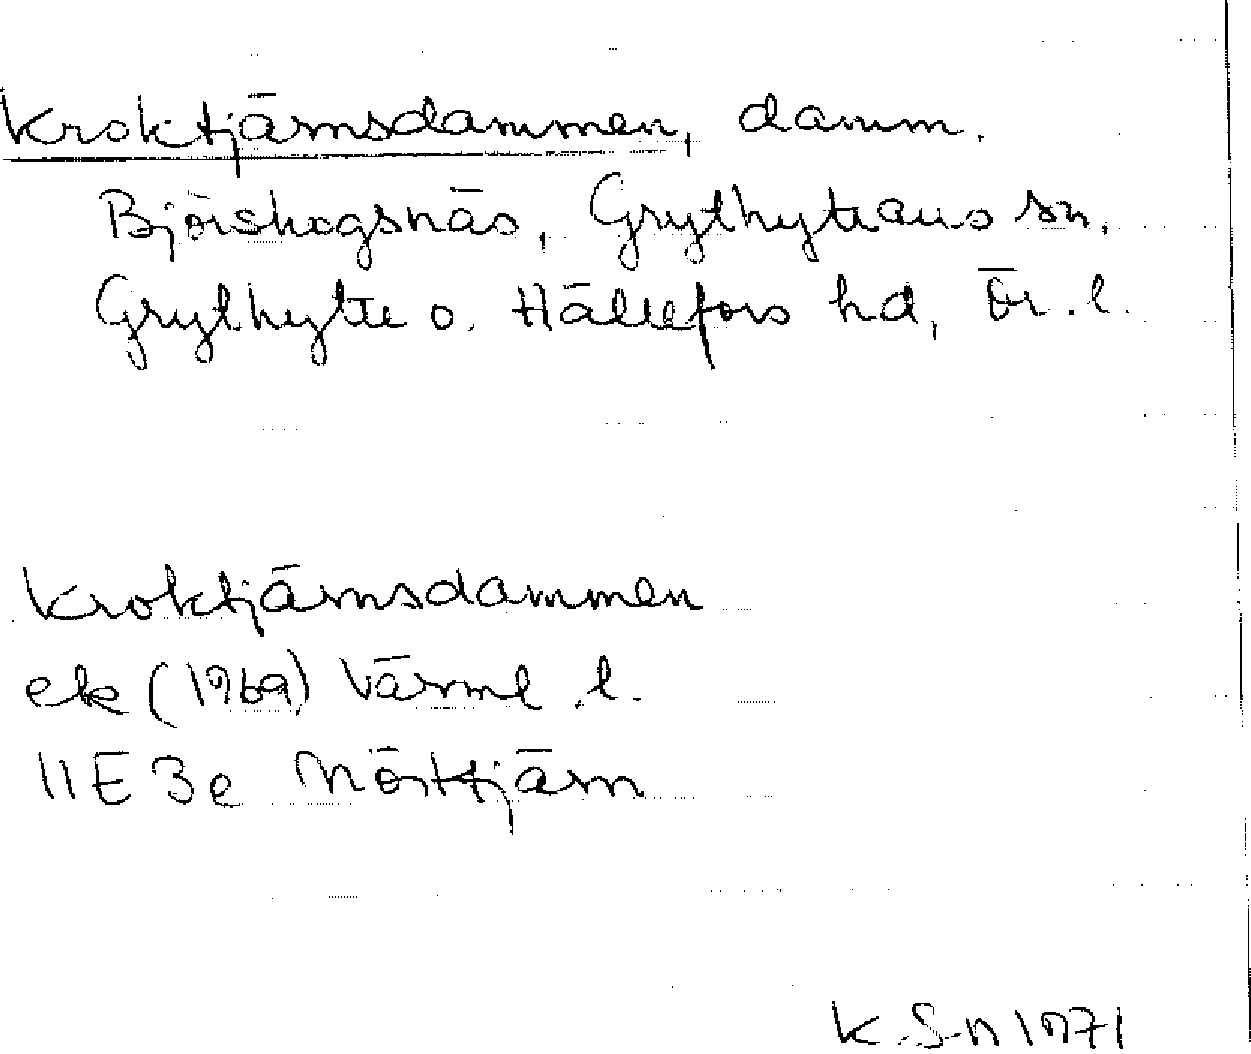 Kroktjärnsdammen, damm.
Björskogsnäs, Grythyttans sn,
Grythytte o. Hällefors hd, Ör. l.
Kroktjärnsdammen
ek (1969) Värml. l.
11E 3e Mörktjärn
K.S-n 1971